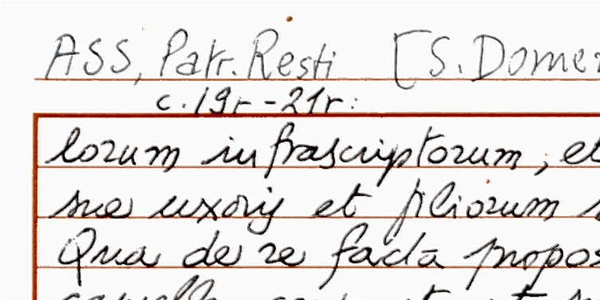 ASS, Patr. Resti [S. Domen
c. 19r-21r:
lorum infrascriptorum, et
sue uxoris et filiorum
Qua de re facta propos